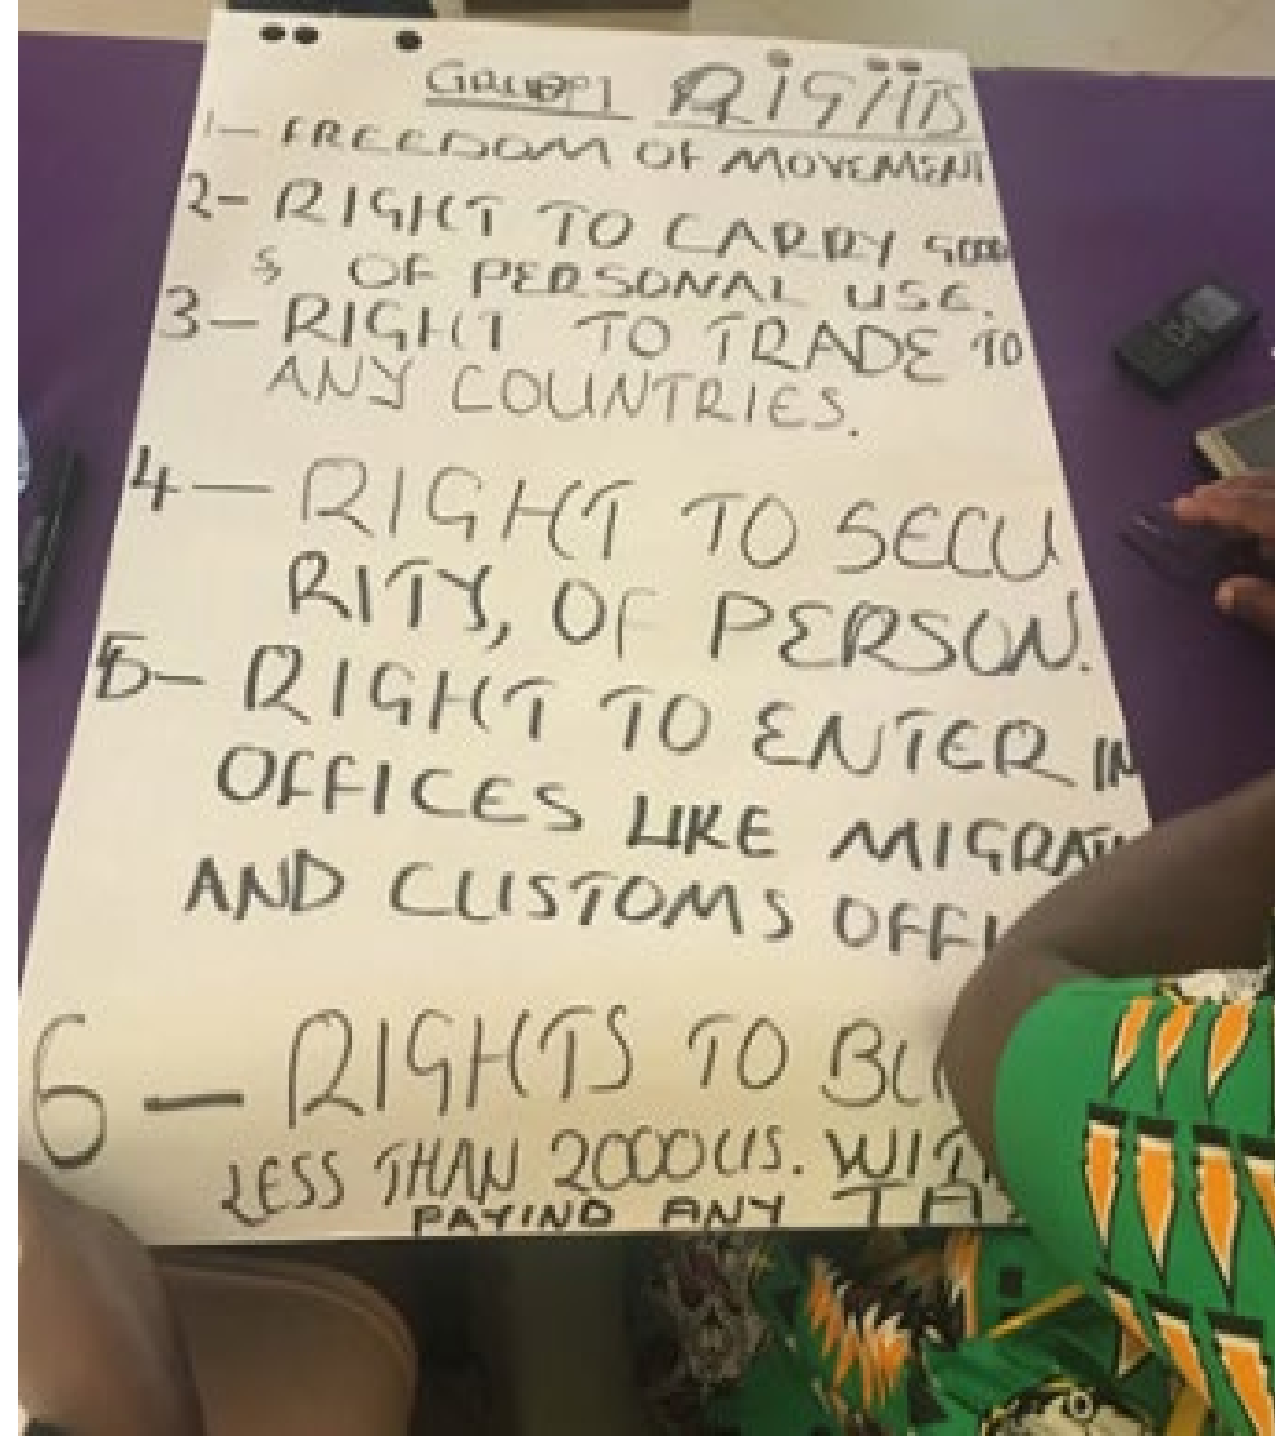 GROUP 1 RIGHTS
1- FREEDOM OF MOVEMENT
2- RIGHT TO CARRY GOOD
S OF PERSONAL USE.
3- RIGHT TO TRADE TO
ANY COUNTRIES.
4- RIGHT TO SECU
RITY, OF PERSON.
5- RIGHT TO ENTER IN
OFFICES LIKE MIGRATI
AND CUSTOMS OFFI
6- RIGHTS TO BU
LESS THAN 2000US. WIT
PAYIND ANY TA